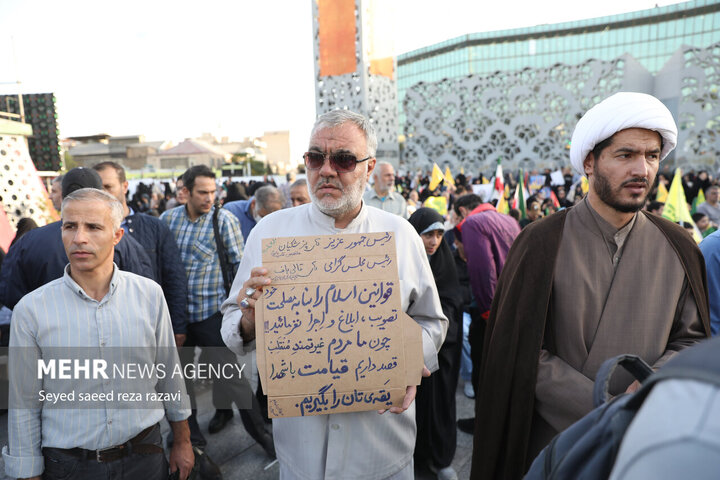 رئیس جمهور عزیز دکتر پزشکیان
رئیس مجلس گرامی دکتر قالیباف
قوانین اسلام را بنا به مصلحت خود
تصویب، ابلاغ و اجرا نفرمائید!!
چون ما مردم غیرتمند ملت
قصد داریم قیامت با شهدا
یقه‌ی تان را بگیریم.
MEHR NEWS AGENCY
Seyed saeed reza razavi